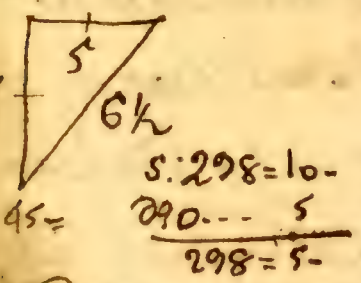 5
6½
s.298=10-
45=
290--- 5
298=5-